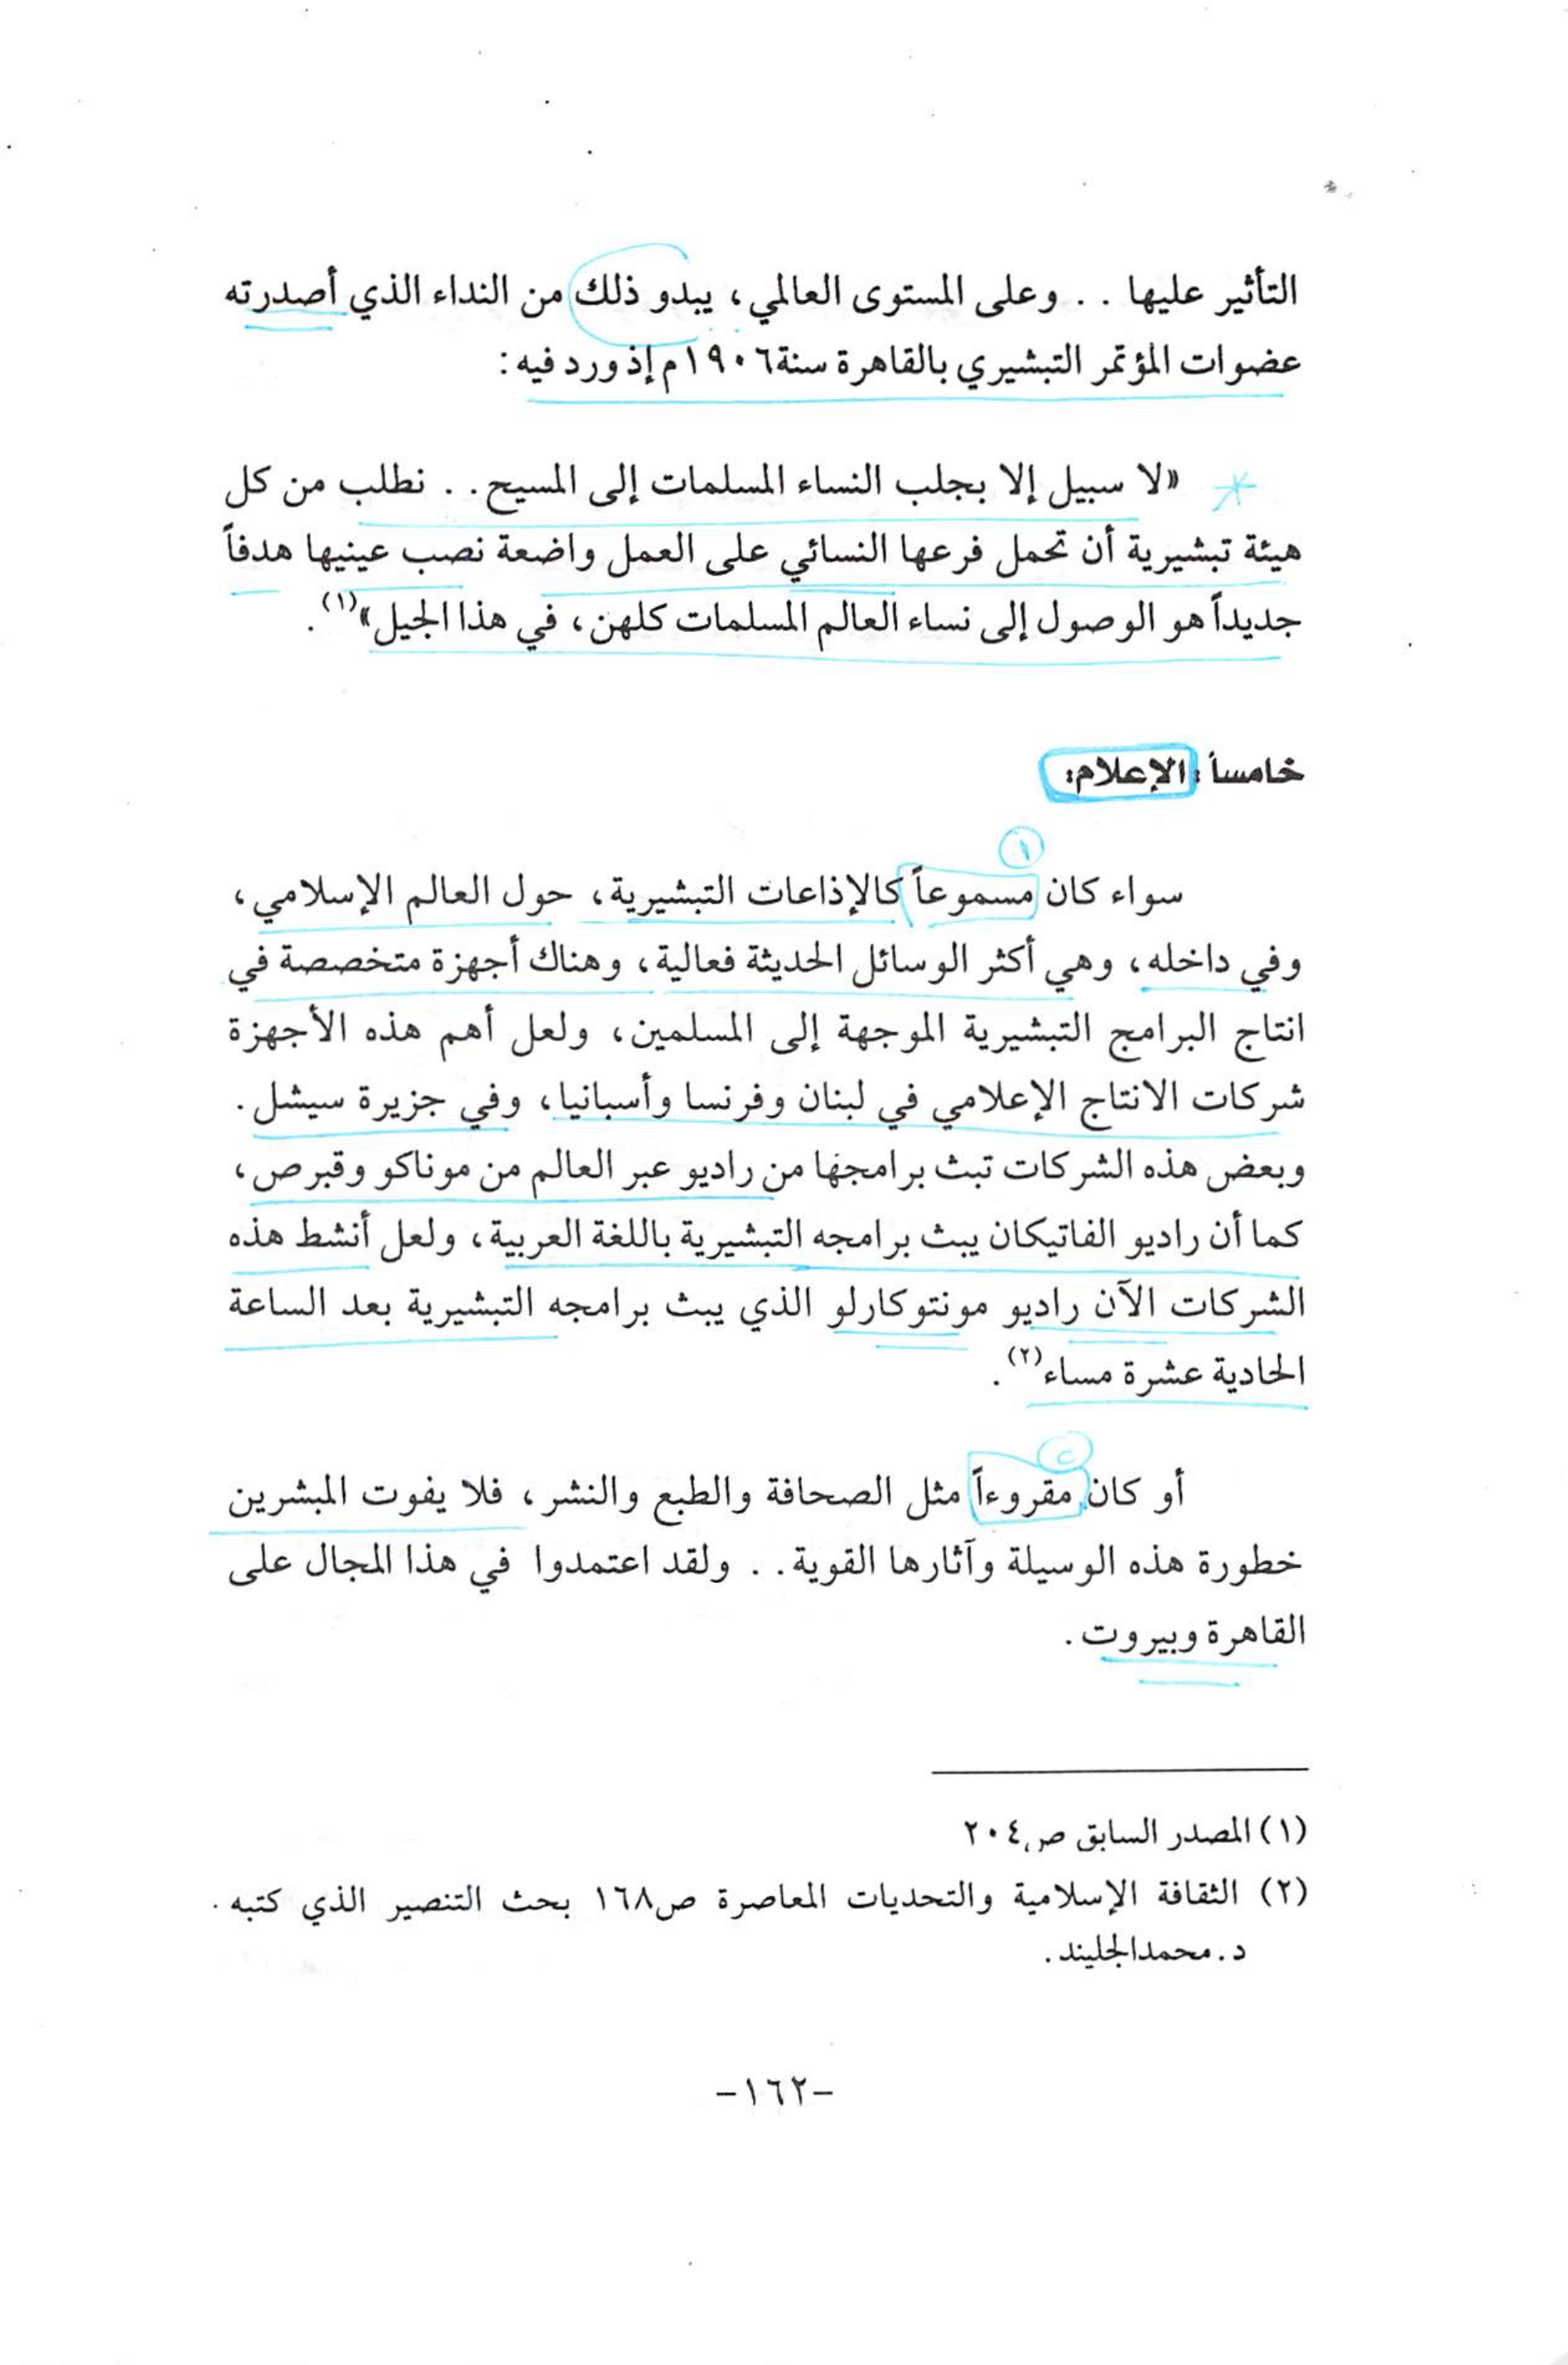 التأثير عليها . . وعلى المستوى العالمي، يبدو ذلك من النداء الذي أصدرته
عضوات المؤتمر التبشيري بالقاهرة سنة١٩٠٦م إذ ورد فيه :
«لا سبيل إلا بجلب النساء المسلمات إلى المسيح . . نطلب من كل
هيئة تبشيرية أن تحمل فرعها النسائي على العمل واضعة نصب عينيها هدفاً
جديداً هو الوصول إلى نساء العالم المسلمات كلهن، في هذا الجيل»(١) .
خامساً : الإعلام:
١
سواء كان مسموعاً كالإذاعات التبشيرية، حول العالم الإسلامي،
وفي داخله، وهي أكثر الوسائل الحديثة فعالية، وهناك أجهزة متخصصة في
انتاج البرامج التبشيرية الموجهة إلى المسلمين، ولعل أهم هذه الأجهزة
شركات الانتاج الإعلامي في لبنان وفرنسا وأسبانيا، وفي جزيرة سيشل .
وبعض هذه الشركات تبث برامجها من راديو عبر العالم من موناكو وقبرص،
كما أن راديو الفاتيكان يبث برامجه التبشيرية باللغة العربية، ولعل أنشط هذه
الشركات الآن راديو مونتوكارلو الذي يبث برامجه التبشيرية بعد الساعة
الحادية عشرة مساء(٢) .
٢
أو كان مقروءاً مثل الصحافة والطبع والنشر، فلا يفوت المبشرين
خطورة هذه الوسيلة وآثارها القوية . . ولقد اعتمدوا في هذا المجال على
القاهرة وبيروت .
(١) المصدر السابق ص٢٠٤
(٢) الثقافة الإسلامية والتحديات المعاصرة ص١٦٨ بحث التنصير الذي كتبه .
د . محمدالجليند .
-١٦٢-